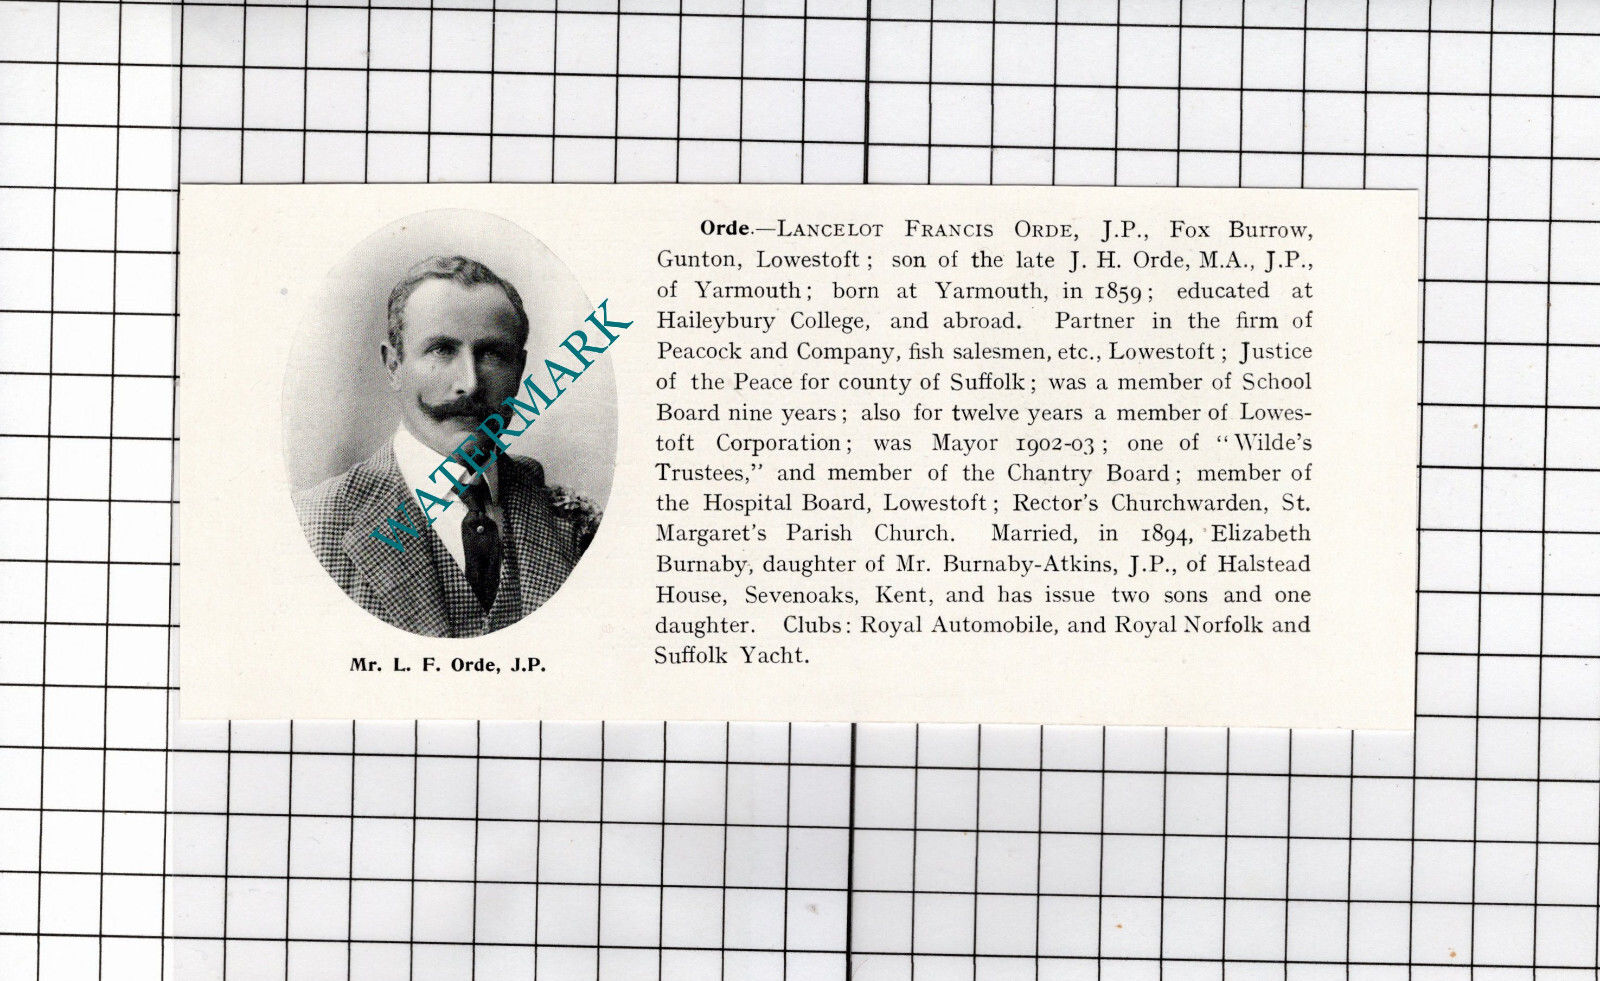 Orde.—LANCELOT FRANCIS ORDE, J.P., Fox Burrow,
Gunton, Lowestoft; son of the late J. H. Orde, M.A., J.P.,
of Yarmouth; born at Yarmouth, in 1859; educated at
Haileybury College, and abroad. Partner in the firm of
Peacock and Company, fish salesmen, etc., Lowestoft; Justice
of the Peace for county of Suffolk; was a member of School
Board nine years; also for twelve years a member of Lowes-
toft Corporation; was Mayor 1902-03; one of “Wilde’s
Trustees,” and member of the Chantry Board; member of
the Hospital Board, Lowestoft; Rector’s Churchwarden, St.
Margaret’s Parish Church. Married, in 1894, Elizabeth
Burnaby, daughter of Mr. Burnaby-Atkins, J.P., of Halstead
House, Sevenoaks, Kent, and has issue two sons and one
daughter. Clubs: Royal Automobile, and Royal Norfolk and
Suffolk Yacht.
Mr. L. F. Orde, J.P.
WATERMARK